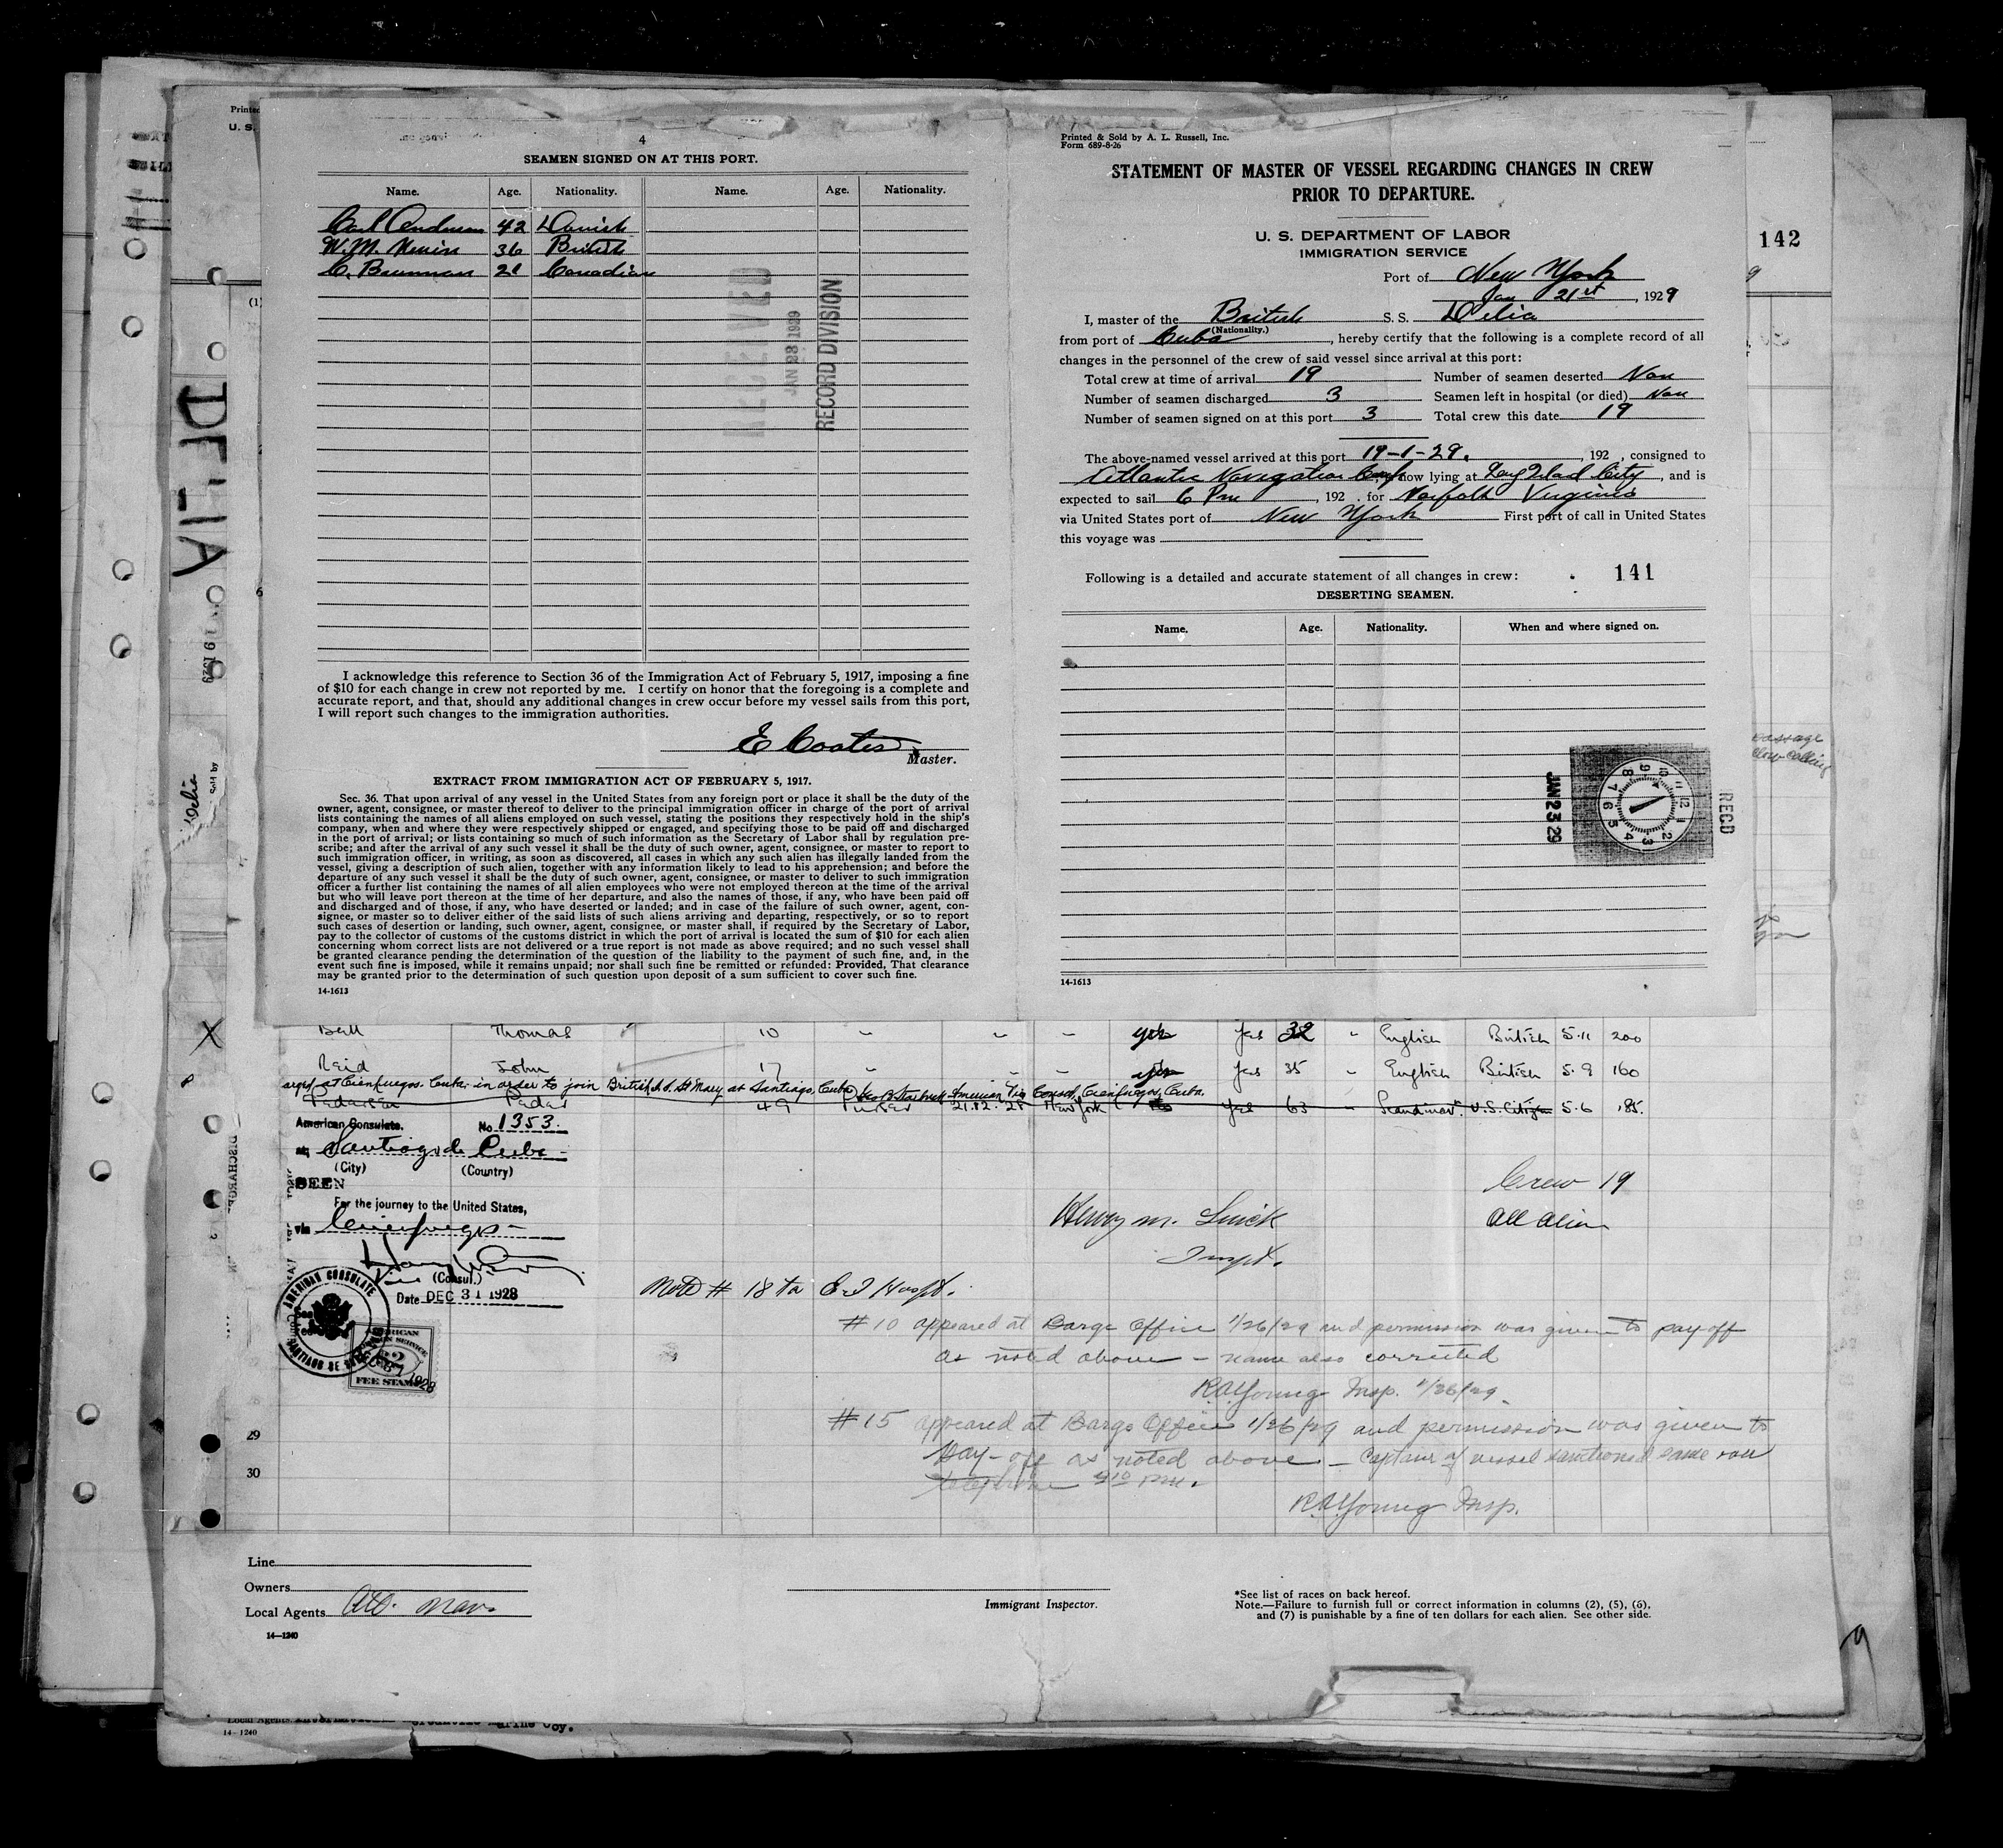 4
SEAMEN SIGNED ON AT THIS PORT.
Name. Age. Nationality. Name. Age. Nationality.
Carl Anderson 42 Danish
W.M. 36 British
C. 21 Canadian
RECEIVED
JAN 23 1929
RECORD DIVISION
I acknowledge this reference to Section 36 of the Immigration Act of February 5, 1917, imposing a fine
of $10 for each change in crew not reported by me. I certify on honor that the foregoing is a complete and
accurate report, and that, should any additional changes in crew occur before my vessel sails from this port,
I will report such changes to the immigration authorities.
E Coates
Master.
EXTRACT FROM IMMIGRATION ACT OF FEBRUARY 5, 1917.
Sec. 36. That upon arrival of any vessel in the United States from any foreign port or place it shall be the duty of the
owner, agent, consignee, or master thereof to deliver to the principal immigration officer in charge of the port of arrival
lists containing the names of all aliens employed on such vessel, stating the positions they respectively hold in the ship's
company, when and where they were respectively shipped or engaged, and specifying those to be paid off and discharged
in the port of arrival; or lists containing so much of such information as the Secretary of Labor shall by regulation pre-
scribe; and after the arrival of any such vessel it shall be the duty of such owner, agent, consignee, or master to report to
such immigration officer, in writing, as soon as discovered, all cases in which any such alien has illegally landed from the
vessel, giving a description of such alien, together with any information likely to lead to his apprehension; and before the
departure of any such vessel it shall be the duty of such owner, agent, consignee, or master to deliver to such immigration
officer a further list containing the names of all alien employees who were not employed thereon at the time of the arrival
but who will leave port thereon at the time of her departure, and also the names of those, if any, who have been paid off
and discharged and of those, if any, who have deserted or landed; and in case of the failure of such owner, agent, con-
signee, or master so to deliver either of the said lists of such aliens arriving and departing, respectively, or so to report
such cases of desertion or landing, such owner, agent, consignee, or master shall, if required by the Secretary of Labor,
pay to the collector of customs of the customs district in which the port of arrival is located the sum of $10 for each alien
concerning whom correct lists are not delivered or a true report is not made as above required; and no such vessel shall
be granted clearance pending the determination of the question of the liability to the payment of such fine, and, in the
event such fine is imposed, while it remains unpaid; nor shall such fine be remitted or refunded: Provided, That clearance
may be granted prior to the determination of such question upon deposit of a sum sufficient to cover such fine.
14-1613
Printed & Sold by A. L. Russell, Inc.
Form 689-8-26
STATEMENT OF MASTER OF VESSEL REGARDING CHANGES IN CREW
PRIOR TO DEPARTURE.
U. S. DEPARTMENT OF LABOR
IMMIGRATION SERVICE
Port of New York
Jan 21st, 1929
I, master of the British S. S. Delia
(Nationality.)
from port of Cuba, hereby certify that the following is a complete record of all
changes in the personnel of the crew of said vessel since arrival at this port:
Total crew at time of arrival 19 Number of seamen deserted Non
Number of seamen discharged 3 Seamen left in hospital (or died) Non
Number of seamen signed on at this port 3 Total crew this date 19
The above-named vessel arrived at this port 19-1-29. , 192 , consigned to
Atlantic Navigation Corp, now lying at Long Island City, and is
expected to sail 6 Pm , 192 . for Norfolk Virginia
via United States port of New York First port of call in United States
this voyage was
Following is a detailed and accurate statement of all changes in crew: 141
DESERTING SEAMEN.
Name. Age. Nationality. When and where signed on.
JAN 23 29
REC'D
14-1613
142
Printed
U. S.
DELIA
Delia
Sold by
passage
Bell Thomas 10 yes Yes 32 English British 5.11 200
Reid John 17 yes Yes 35 English British 5.9 160
at Cienfuegos. Cuba. in order to join British S.S. St Mary at Santiago, Cuba American Consul, Cienfuegos, Cuba.
Pedersen Peder 49 21.12.28 New York Yes 63 Scandinav. U.S. Citizen 5.6 185.
American Consulate. No 1353.
at Santiago de Cuba
(City) (Country)
SEEN
For the journey to the United States,
via Cienfuegos
Vice (Consul.)
Date DEC 31 1928
AMERICAN CONSULATE
SANTIAGO DE
FEE STAMP
Crew 19
All alien
Henry M.
Inspt.
# 18 to E.I Hospt.
#10 appeared at Barge Office 1/26/29 and permission was given to pay off
as noted above - name also corrected
R.A. Young Insp. 1/26/29.
#15 appeared at Barge Office 1/26/29 and permission was given to
pay-off as noted above - Captain of vessel sanctioned same
telephone 4:10 P.M.
R.A. Young Insp.
29
30
Line
Owners
Local Agents Atl. Nav.
14—1240
Immigrant Inspector.
*See list of races on back hereof.
Note.—Failure to furnish full or correct information in columns (2), (5), (6),
and (7) is punishable by a fine of ten dollars for each alien. See other side.
9
Local Agents
14-1240